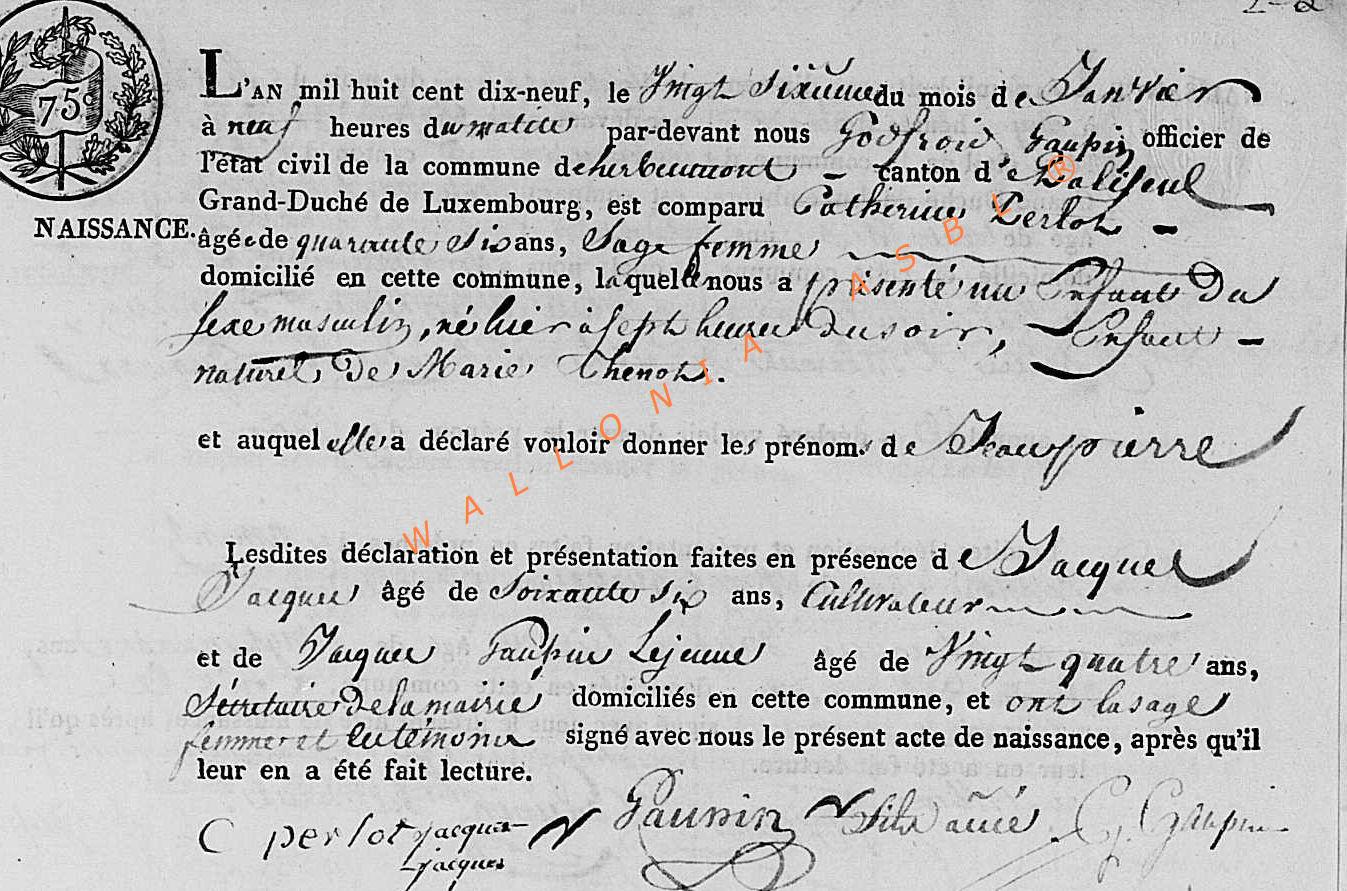 75c
L'AN mil huit cent dix-neuf, le Vingt Sixieme du mois de Janvier
à neuf heures du matin par-devant nous Godfroid Gaupin officier de
l'état civil de la commune de herbeumont - canton de Paliseul
Grand-Duché de Luxembourg, est comparu Catherine Perlot -
NAISSANCE.
âgée de quarante Six ans, Sage femme
domicilié en cette commune, laquelle nous a présenté un Enfant Du
sexe masculin, né hier à Sept heures du soir, Enfant -
naturel De Marie Thenot.
et auquel elle a déclaré vouloir donner les prénoms de Jean pierre
Lesdites déclaration et présentation faites en présence de Jacque
Jacques âgé de Soixante Six ans, Cultivateur
et de Jacques Gaupin Lejeune âgé de Vingt quatre ans,
Sécretaire De la mairie domiciliés en cette commune, et ont la sage
femme et les témoins signé avec nous le présent acte de naissance, après qu'il
leur en a été fait lecture.
C perlot jacque
jacques
Gaupin fils ainé G. Gaupin
WALLONIA ASBL ®